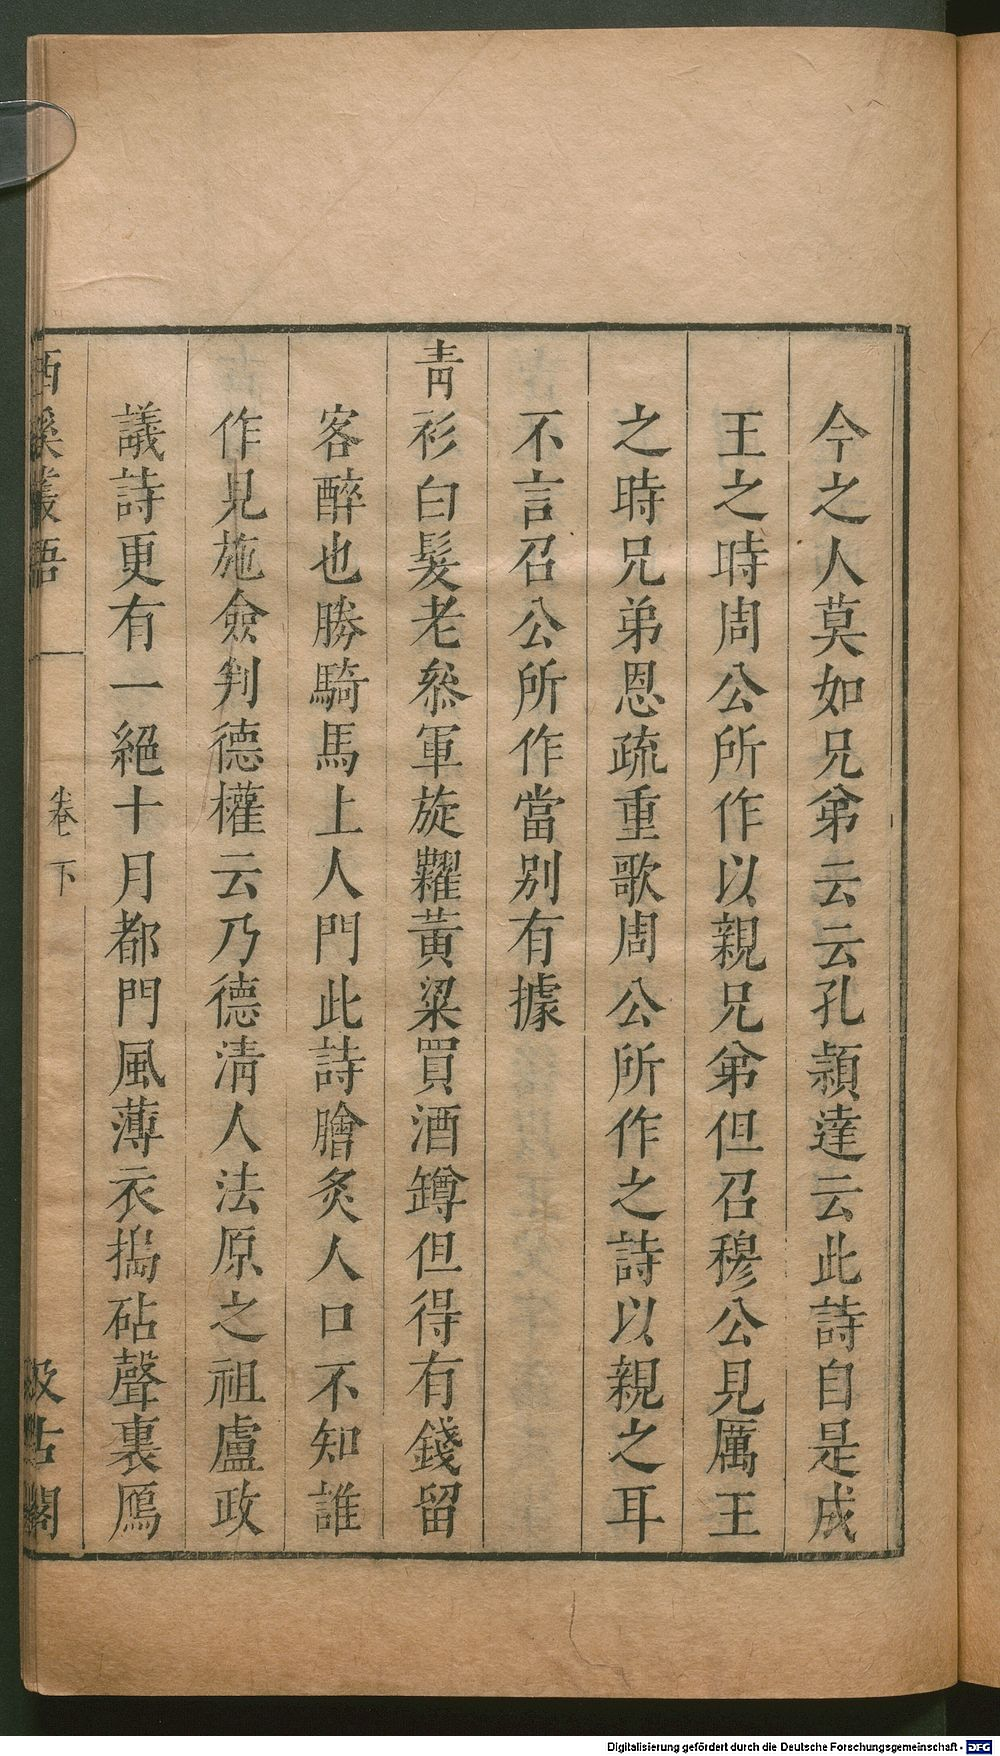 今之人莫如兄弟云云孔穎達云此詩自是成
王之時周公所作以親兄弟但召穆公見厲王
之時兄弟恩疏重歌周公所作之詩以親之耳
不言召公所作當別有據
青衫白髮老叅軍旋糶黃粱買酒罇但得有錢留
客醉也勝騎馬上人門此詩膾炙人口不知誰
作見施僉判德權云乃德清人法原之祖盧政
議詩更有一絕十月都門風薄衣搗砧聲裏鴈
西溪叢語
卷下
汲古閣
Digitalisierung gefördert durch die Deutsche Forschungsgemeinschaft - DFG